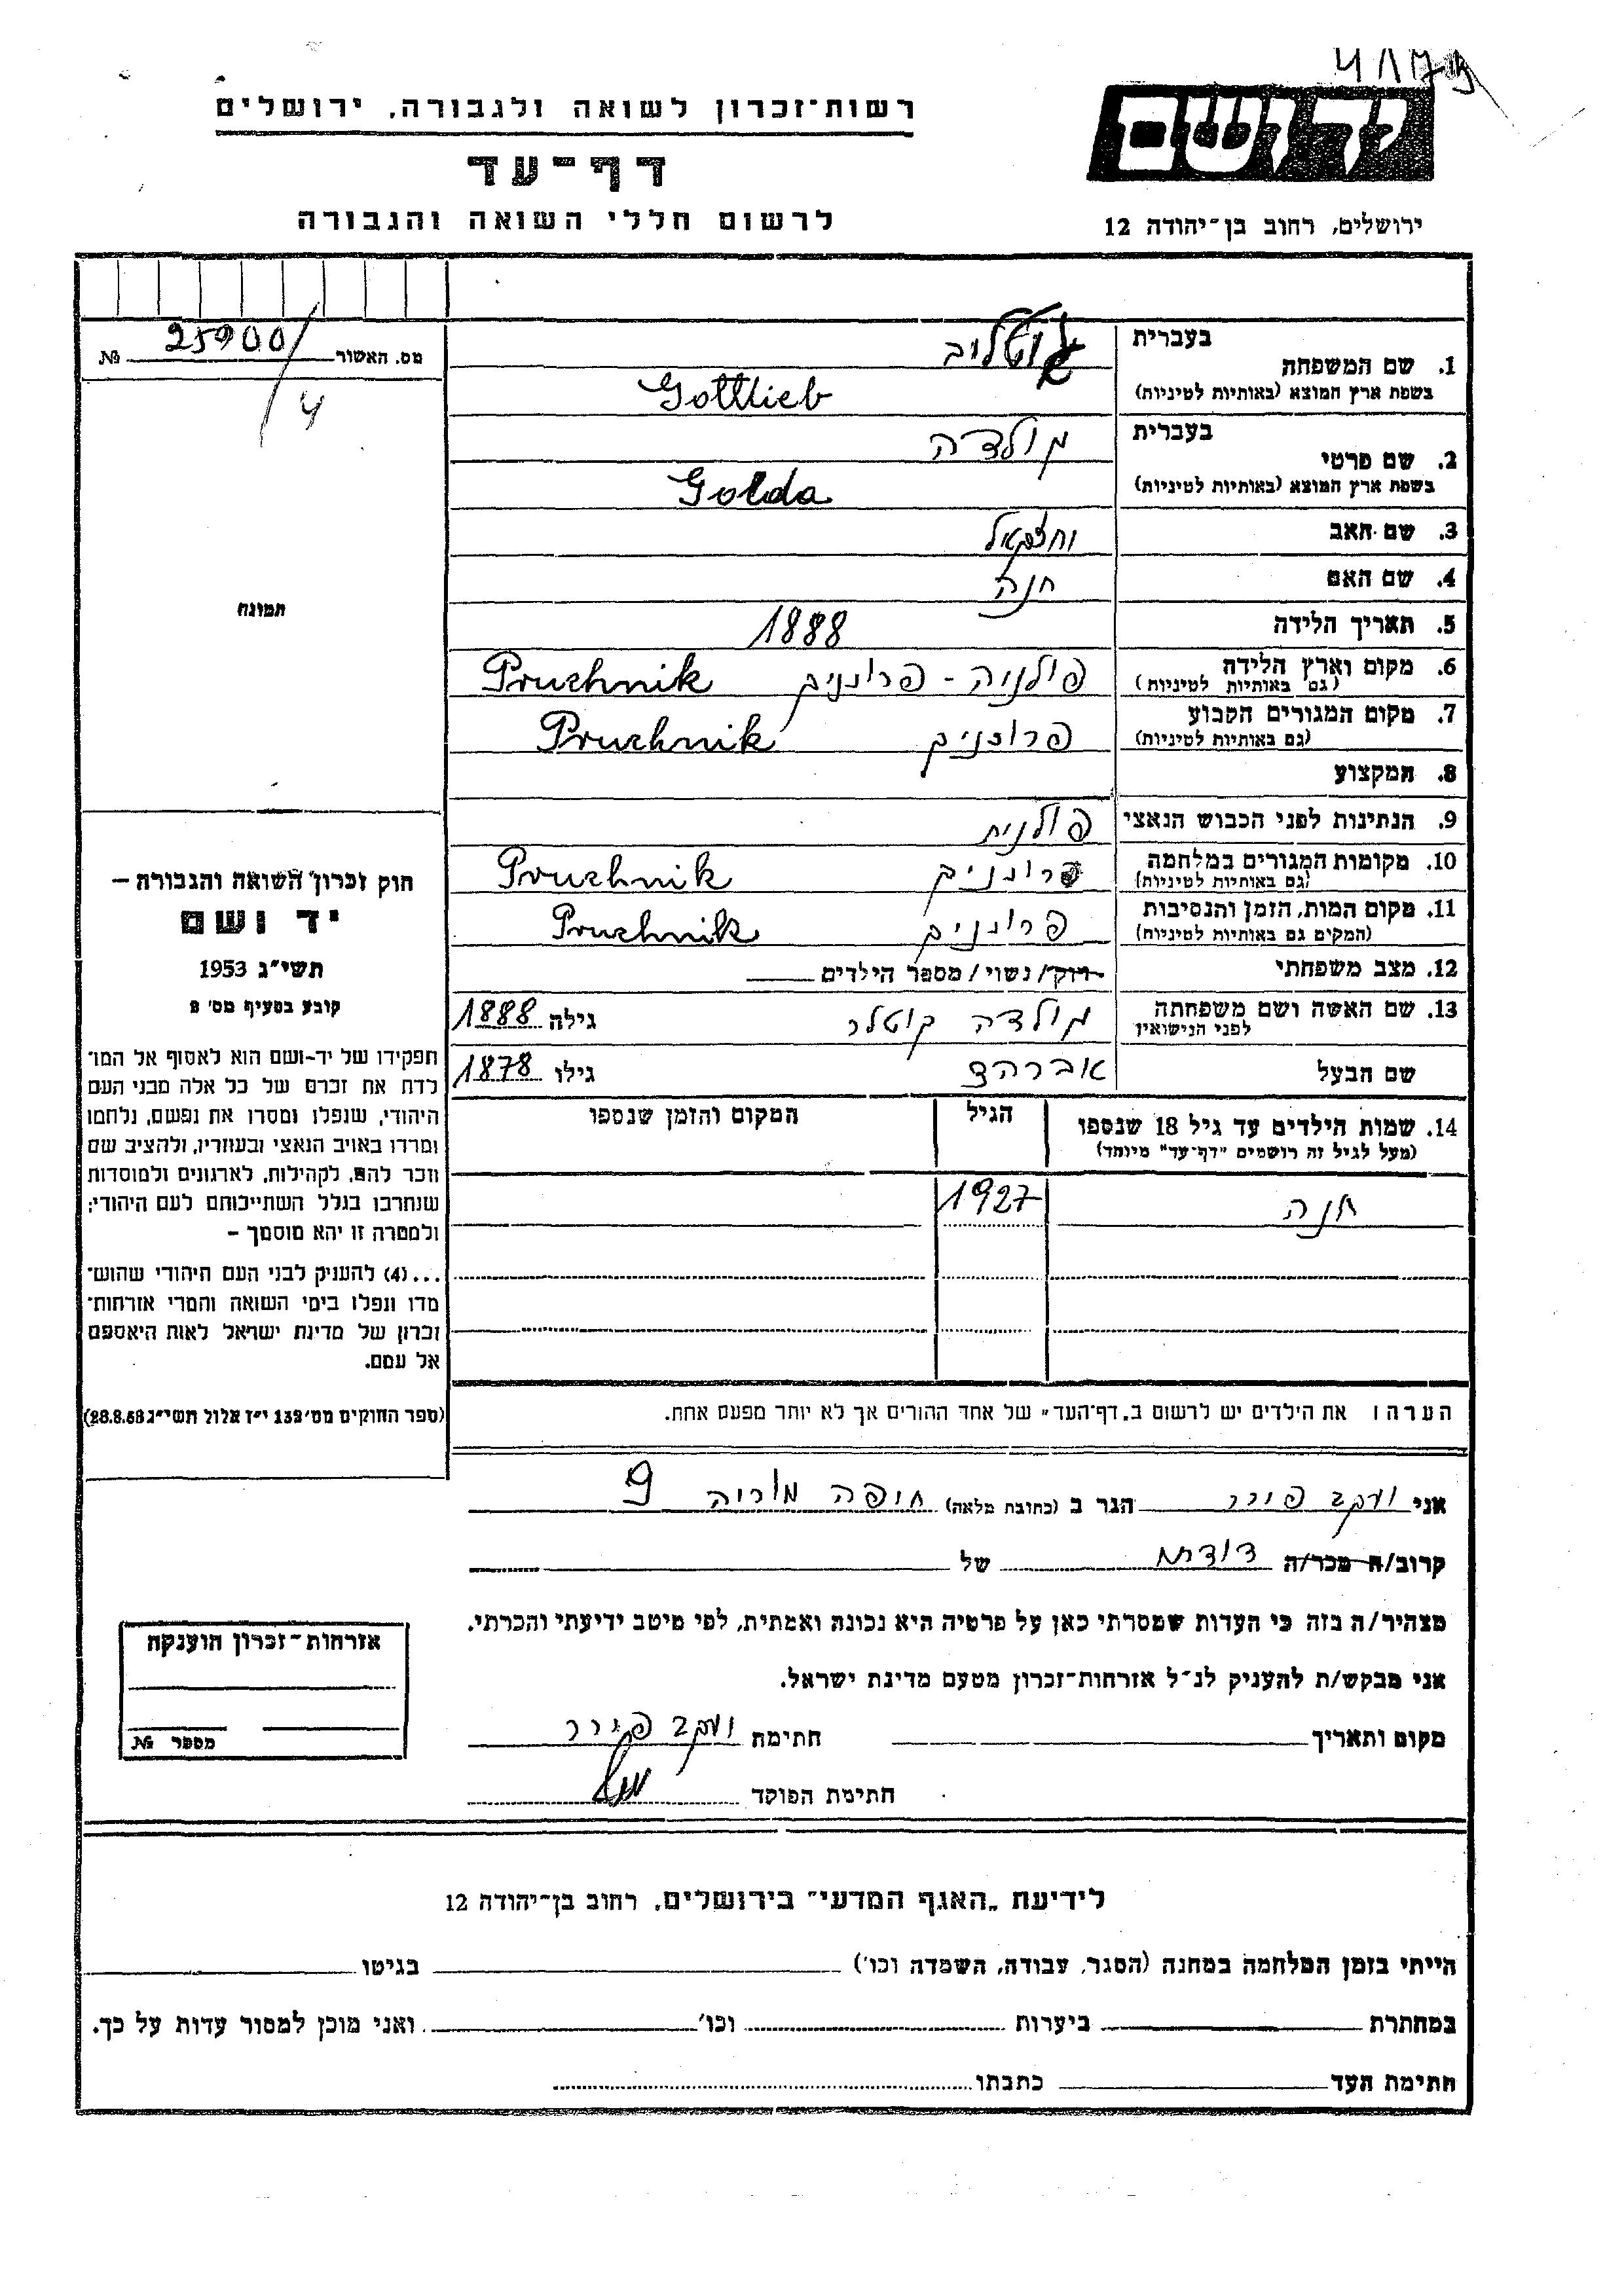 רשות־זכרון לשואה ולגבורה, ירושלים
דף־עד
לרשום חללי השואה והגבורה
יד ושם
ירושלים, רחוב בן־יהודה 12
מס. האשור 25900 №
4
תמונה
1. שם המשפחה בעברית גוטליב
בשפת ארץ המוצא (באותיות לטיניות) Gottlieb
2. שם פרטי בעברית גולדה
בשפת ארץ המוצא (באותיות לטיניות) Golda
3. שם האב יחזקאל
4. שם האם חנה
5. תאריך הלידה 1888
6. מקום וארץ הלידה (גם באותיות לטיניות) פולניה - פרוכניק Pruchnik
7. מקום המגורים הקבוע (גם באותיות לטיניות) פרוכניק Pruchnik
8. המקצוע
9. הנתינות לפני הכבוש הנאצי פולנית
10. מקומות המגורים במלחמה (גם באותיות לטיניות) פרוכניק Pruchnik
11. מקום המות, הזמן והנסיבות (המקום גם באותיות לטיניות) פרוכניק Pruchnik
12. מצב משפחתי רווק/נשוי/מספר הילדים
13. שם האשה ושם משפחתה לפני הנישואין גולדה קוטלר גילה 1888
שם הבעל אברהם גילו 1878
14. שמות הילדים עד גיל 18 שנספו הגיל המקום והזמן שנספו
(מעל לגיל זה רושמים "דף־עד" מיוחד)
חנה 1927
הערה: את הילדים יש לרשום ב„דף־העד" של אחד ההורים אך לא יותר מפעם אחת.
חוק זכרון השואה והגבורה –
יד ושם
תשי"ג 1953
קובע בסעיף מס' 2
תפקידו של יד־ושם הוא לאסוף אל המו־
לדת את זכרם של כל אלה מבני העם
היהודי, שנפלו ומסרו את נפשם, נלחמו
ומרדו באויב הנאצי ובעוזריו, ולהציב שם
וזכר להם, לקהילות, לארגונים ולמוסדות
שנחרבו בגלל השתייכותם לעם היהודי;
ולמטרה זו יהא מוסמך –
...(4) להעניק לבני העם היהודי שהוש־
מדו ונפלו בימי השואה והמרי אזרחות־
זכרון של מדינת ישראל לאות היאספם
אל עמם.
(ספר החוקים מס' 132 י"ז אלול תשי"ג 28.8.53)
אני יעקב פורר הגר ב (כתובת מלאה) חיפה מוריה 9
קרוב/ה מכר/ה דודתי של
מצהיר/ה בזה כי העדות שמסרתי כאן על פרטיה היא נכונה ואמתית, לפי מיטב ידיעתי והכרתי.
אני מבקש/ת להעניק לנ"ל אזרחות־זכרון מטעם מדינת ישראל.
מקום ותאריך חתימת יעקב פורר
חתימת הפוקד
אזרחות־זכרון הוענקה
מספר №
לידיעת „האגף המדעי" בירושלים, רחוב בן־יהודה 12
הייתי בזמן המלחמה במחנה (הסגר, עבודה, השמדה וכו') בגיטו
במחתרת ביערות וכו' ואני מוכן למסור עדות על כך.
חתימת העד כתבתו